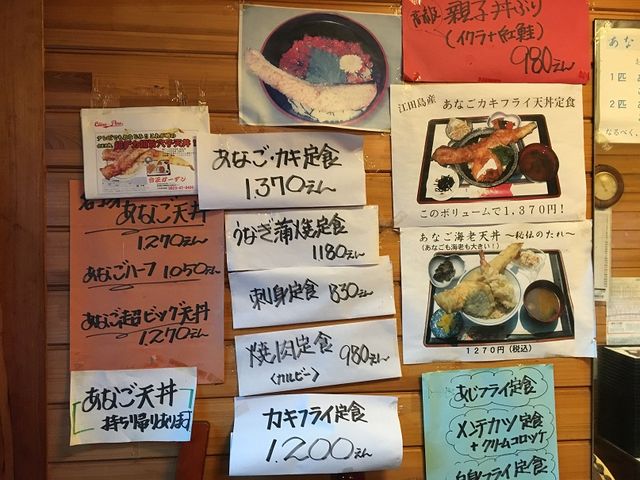 高級 親子丼ぶり
(イクラ+紅鮭)
980えん
あなご天丼
1270えん
あなごハーフ 1050えん
あなご超ビッグ天丼
1,270えん
あなご天丼
持ち帰りあります
あなご・カキ定食
1,370えん
うなぎ蒲焼定食
1180えん
刺身定食 830えん
焼肉定食 980えん
(カルビー)
カキフライ定食
1,200えん
江田島産 あなごカキフライ天丼定食
このボリュームで1,370円!
あなご海老天丼 ~秘伝のたれ~
(あなごも海老も大きい!)
1270円(税込)
あじフライ定食
メンチカツ定食
+クリームコロッケ
白身フライ定食
1匹
2匹